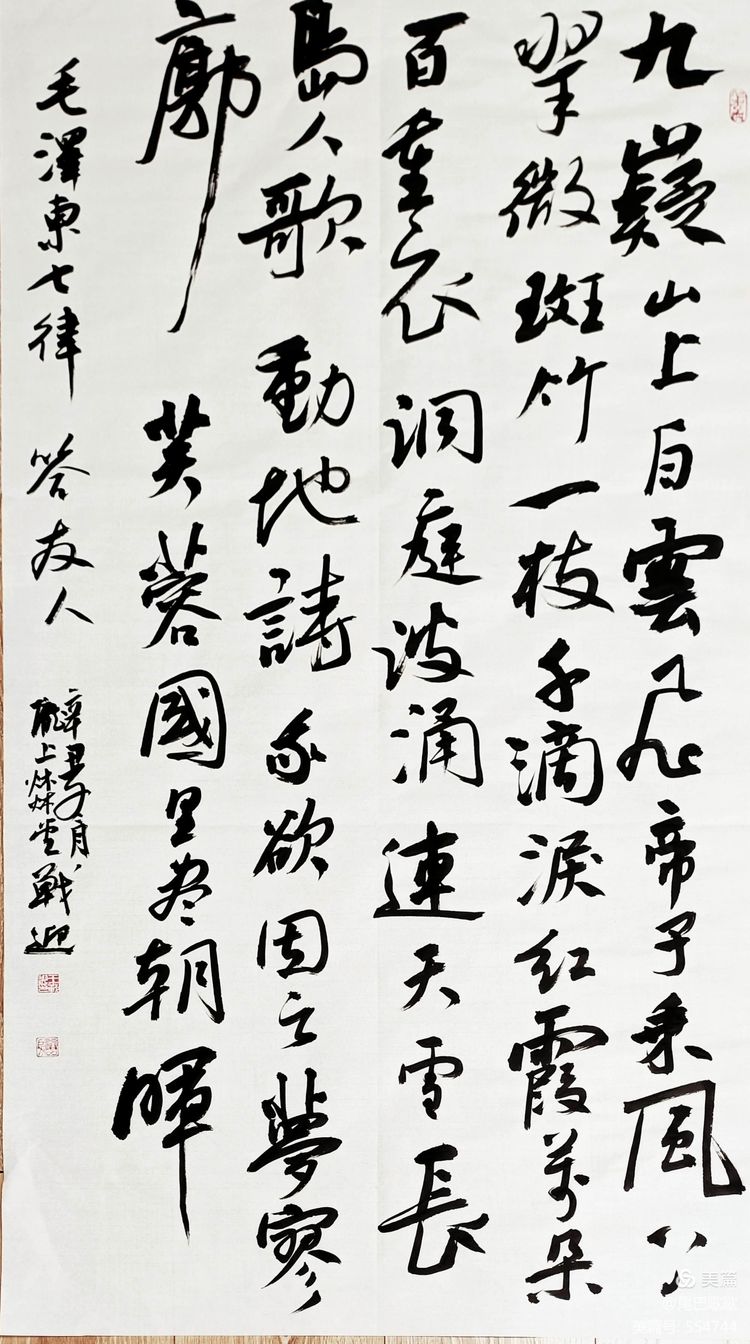 九嶷山上白雲飛帝子乘風下
翠微斑竹一枝千滴淚紅霞萬朵
百重衣洞庭波涌連天雪長
島人歌動地詩我欲因之夢寥
廓芙蓉國里尽朝暉
毛澤東七律 答友人
辛丑月
上堂戰迎
美篇
美篇号:554744